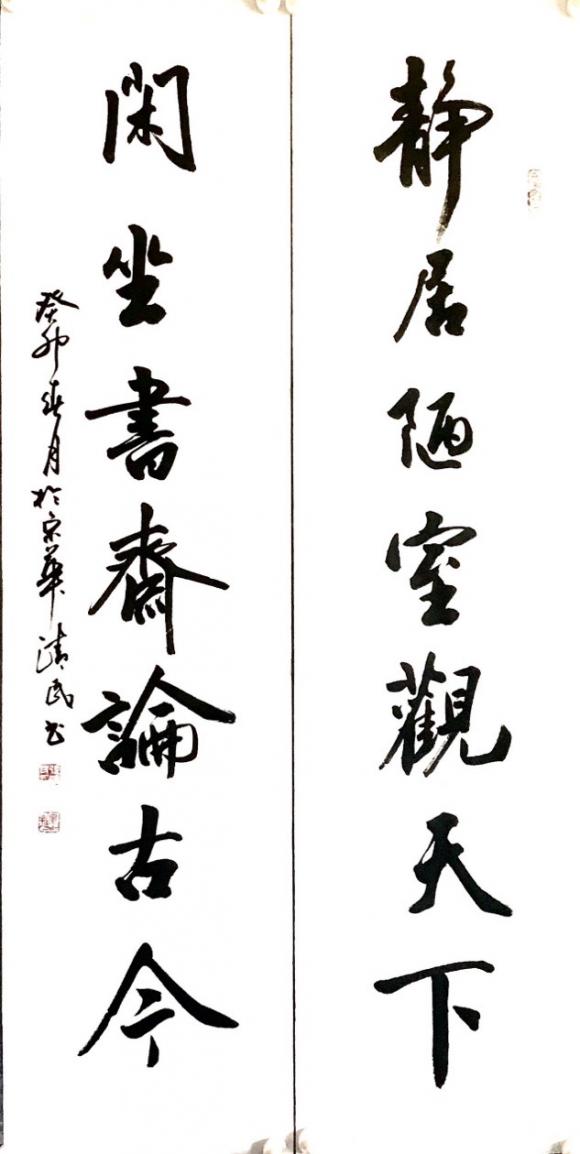 静居陋室觀天下
閑坐書齋論古今
癸卯春月於京華清民书